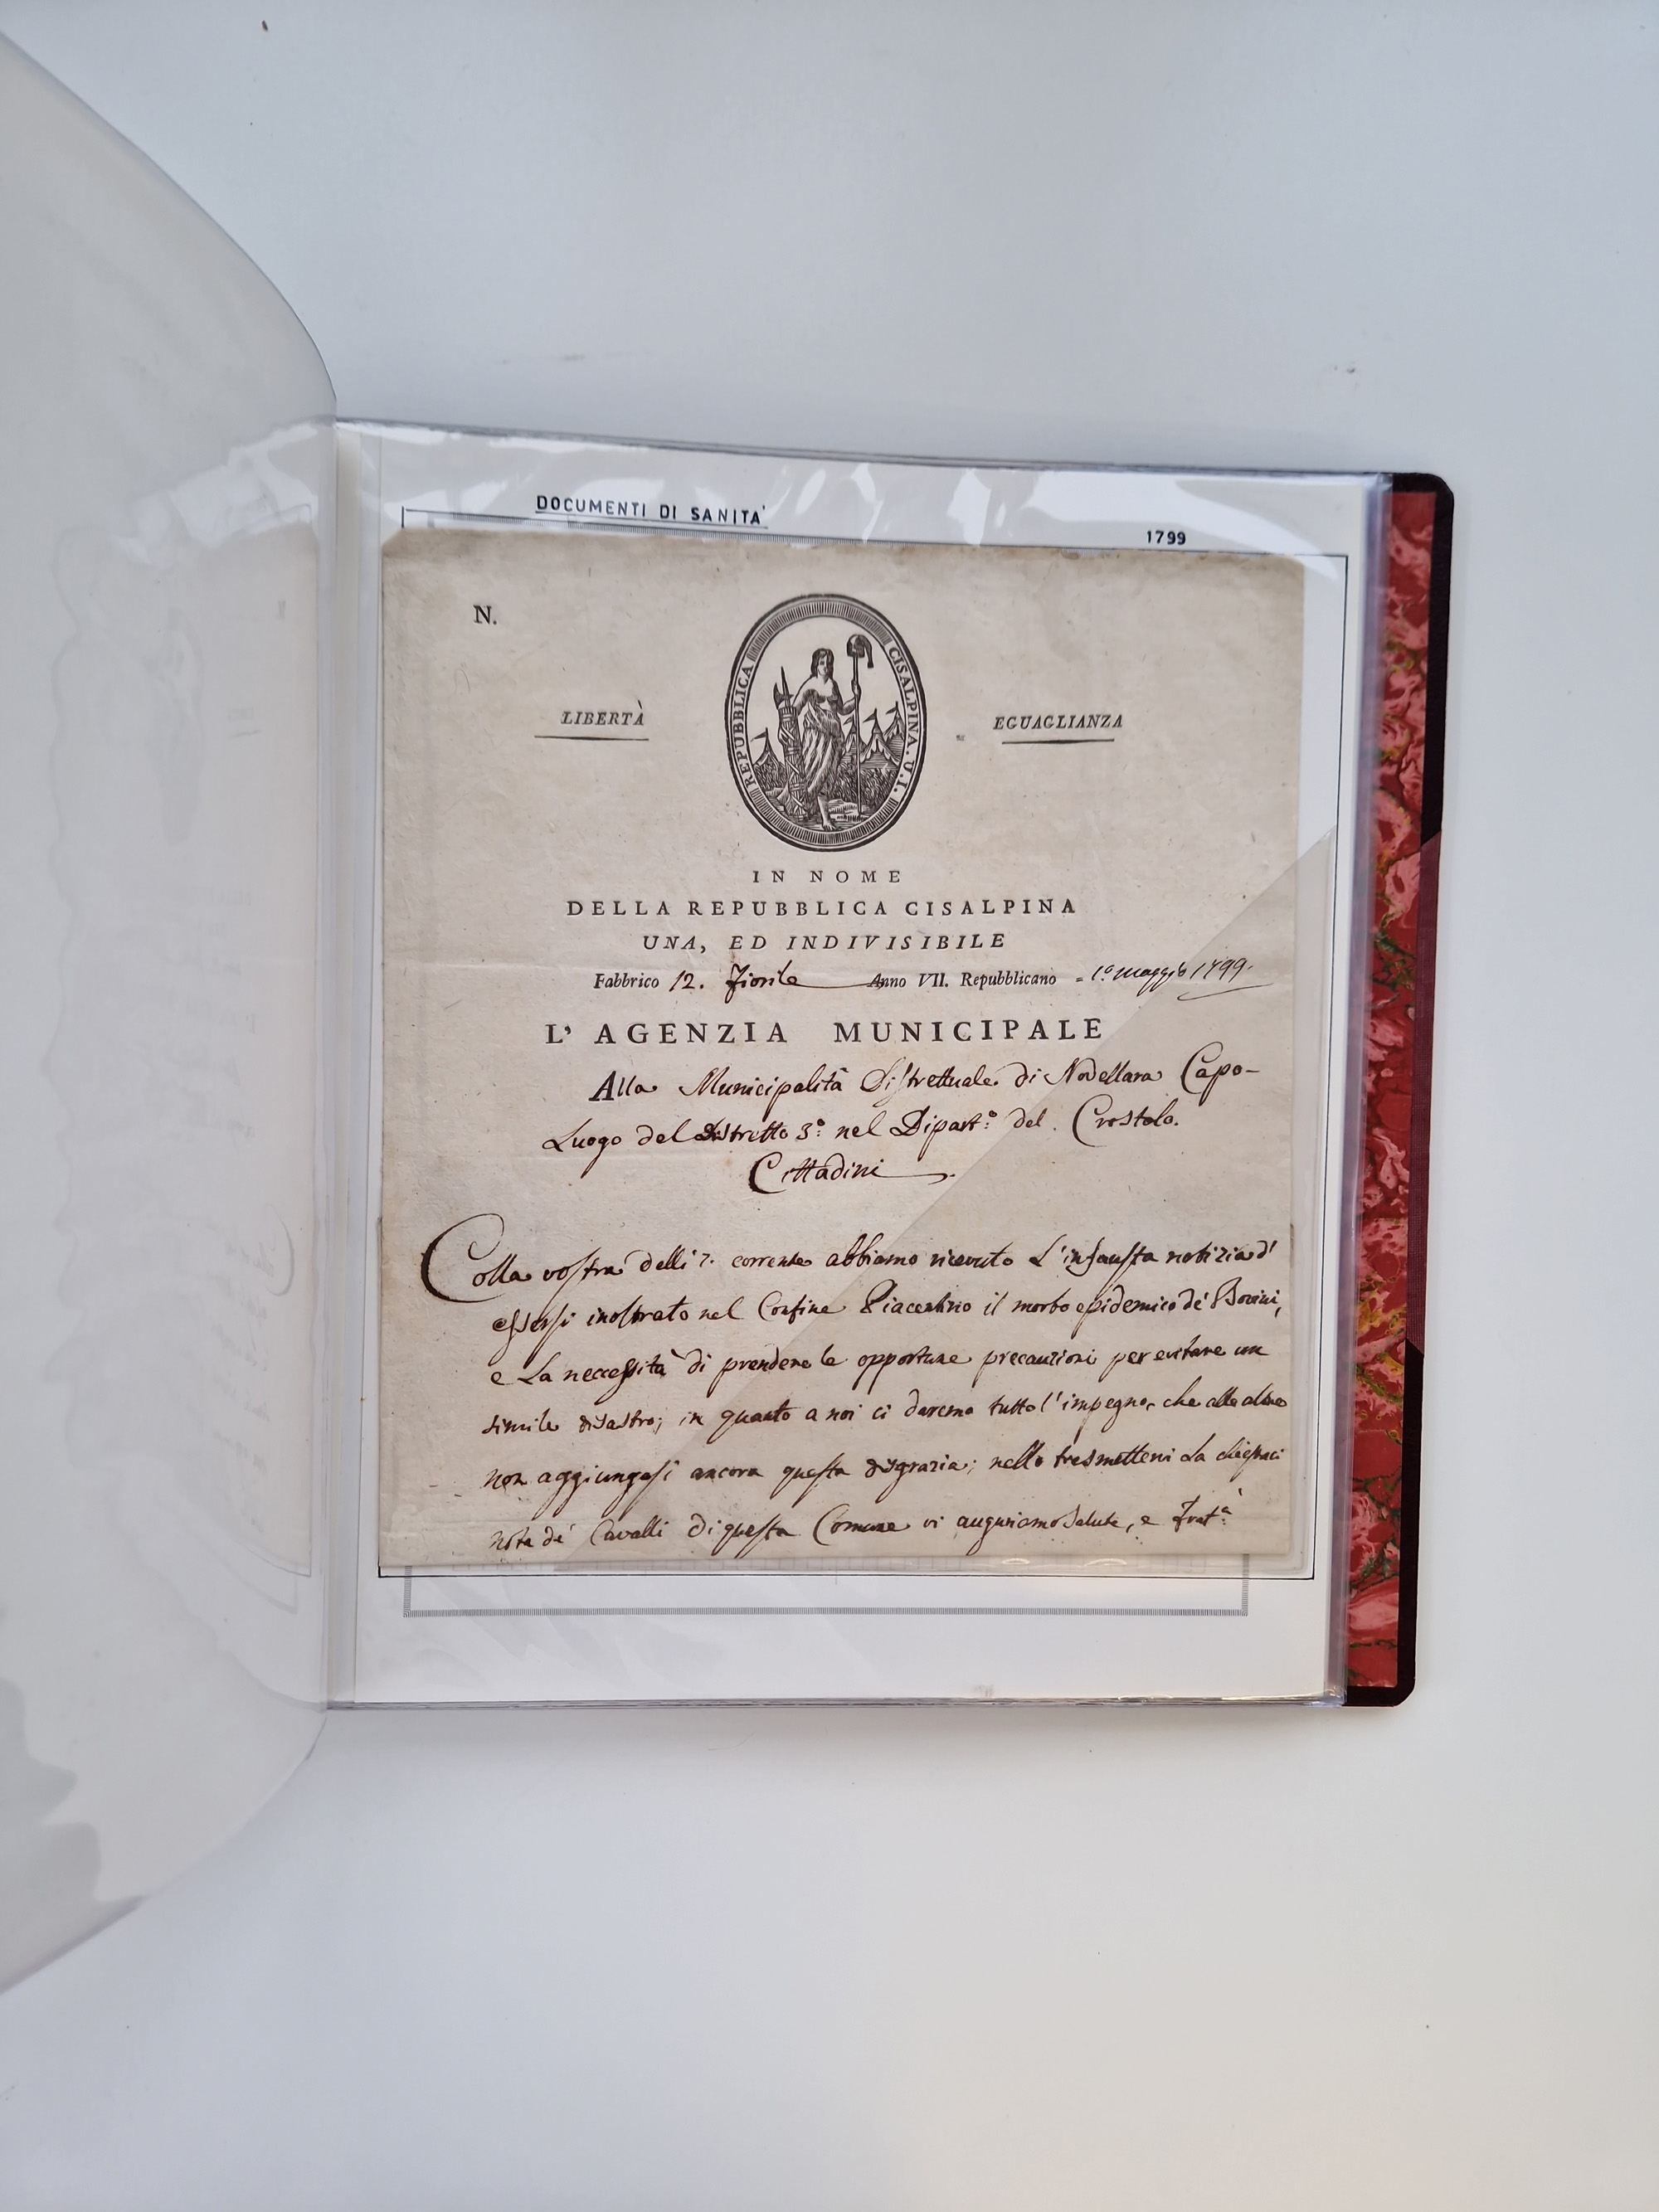 DOCUMENTI DI SANITA'
1799
N.
LIBERTÀ
REPUBBLICA CISALPINA. U. I.
EGUAGLIANZA
IN NOME
DELLA REPUBBLICA CISALPINA
UNA, ED INDIVISIBILE
Fabbrico 12. Fiorile Anno VII. Repubblicano = 1º maggio 1799.
L' AGENZIA MUNICIPALE
Alla Municipalità Distrettuale di Novellara Capo-
Luogo del Distretto 3º: nel Dipartº: del. Crostolo.
Cittadini
Colla vostra delli 7. corrente abbiamo ricevuto L'infausta notizia d'
essersi inoltrato nel Confine Piacentino il morbo epidemico de' Bovini,
e La necessità di prendere le opportune precauzioni per evitare un
simile disastro; in quanto a noi ci daremo tutto l'impegno, che alle altre
non aggiungasi ancora questa disgrazia; nello tresmettervi La
nota de' Cavalli di questa Comune vi auguriamo Salute, e Fratà: